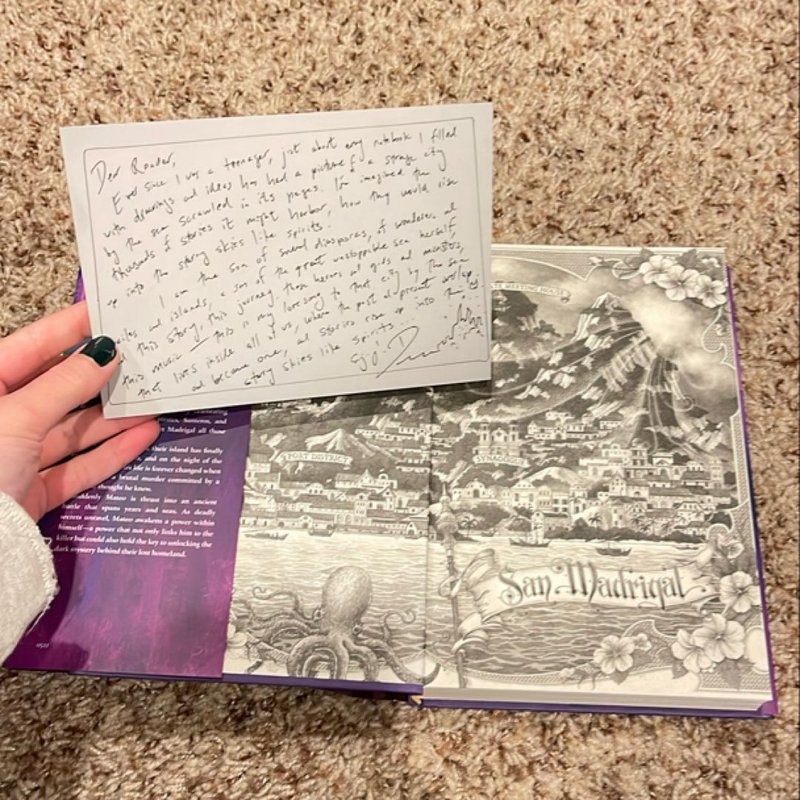 Dear Reader,
Ever since I was a teenager, just about every notebook I filled
with drawings and ideas has had a picture of a strange city
by the sea scrawled in its pages. I've imagined the
thousands of stories it might harbor, how they would rise
up into the starry skies like spirits.
I am the son of several diasporas, of wonders, of
and islands, a son of the great unstoppable sea herself,
this story, this journey, these heroes and gods and monsters,
this music — this is my love song to that city by the sea
that lives inside all of us, where the past and present overlap
and become one, and stories rise up into the
story skies like spirits...
and
Santeros, and
Madrigal all those
their island has finally
and on the night of the
life is forever changed when
brutal murder committed by a
thought he knew.
Suddenly Mateo is thrust into an ancient
battle that spans years and seas. As deadly
secrets unravel, Mateo awakens a power within
himself—a power that not only links him to the
killer but could also hold the key to unlocking the
dark mystery behind their lost homeland.
0521
MEETING HOUSE
PORT DISTRICT
San Madrigal